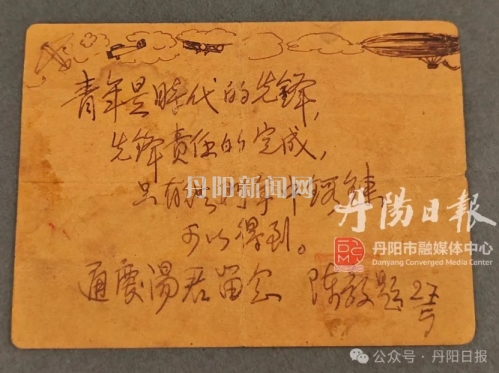 青年是時代的先鋒,
先鋒責任的完成,
只有在鬥爭中鍛鍊
可以得到。
通震湯君留念 陳毅題
丹阳新闻网
丹陽日報
丹阳市融媒体中心
Danyang Converged Media Center
公众号·丹阳日报